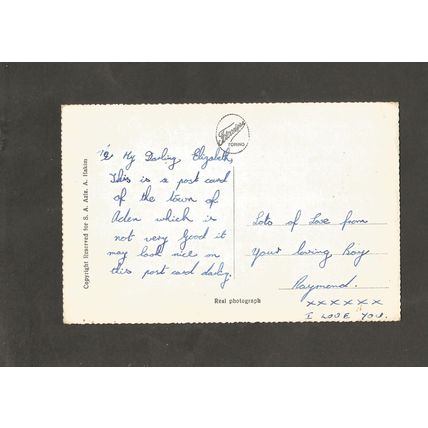 To My Darling Elizabeth,
This is a post card
of the town of
Aden which is
not very Good it
may look nice on
this post card darling.
Lots of Love from
Your loving Boy
Raymond.
xxxxxx
I LOVE YOU.
Real photograph
Copyright Reserved for S. A. Aziz. A. Hakim
TORINO